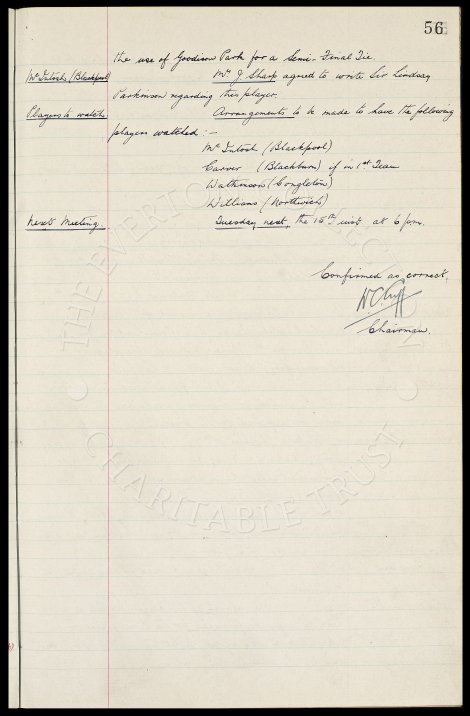 56
the use of Goodison Park for a Semi-Final Tie.
McIntosh (Blackpool) Mr J Sharp agreed to write Sir Lindsay
Parkinson regarding this player.
Players to watch. Arrangements to be made to have the following
players watched:-
McIntosh (Blackpool)
Carver (Blackburn) if in 1st Team
Watkinson (Congleton)
Williams (Northwich)
Next Meeting. Tuesday next, the 15th inst at 6 pm.
Confirmed as correct.
W C Cuff
Chairman.
THE EVERTON
CHARITABLE TRUST